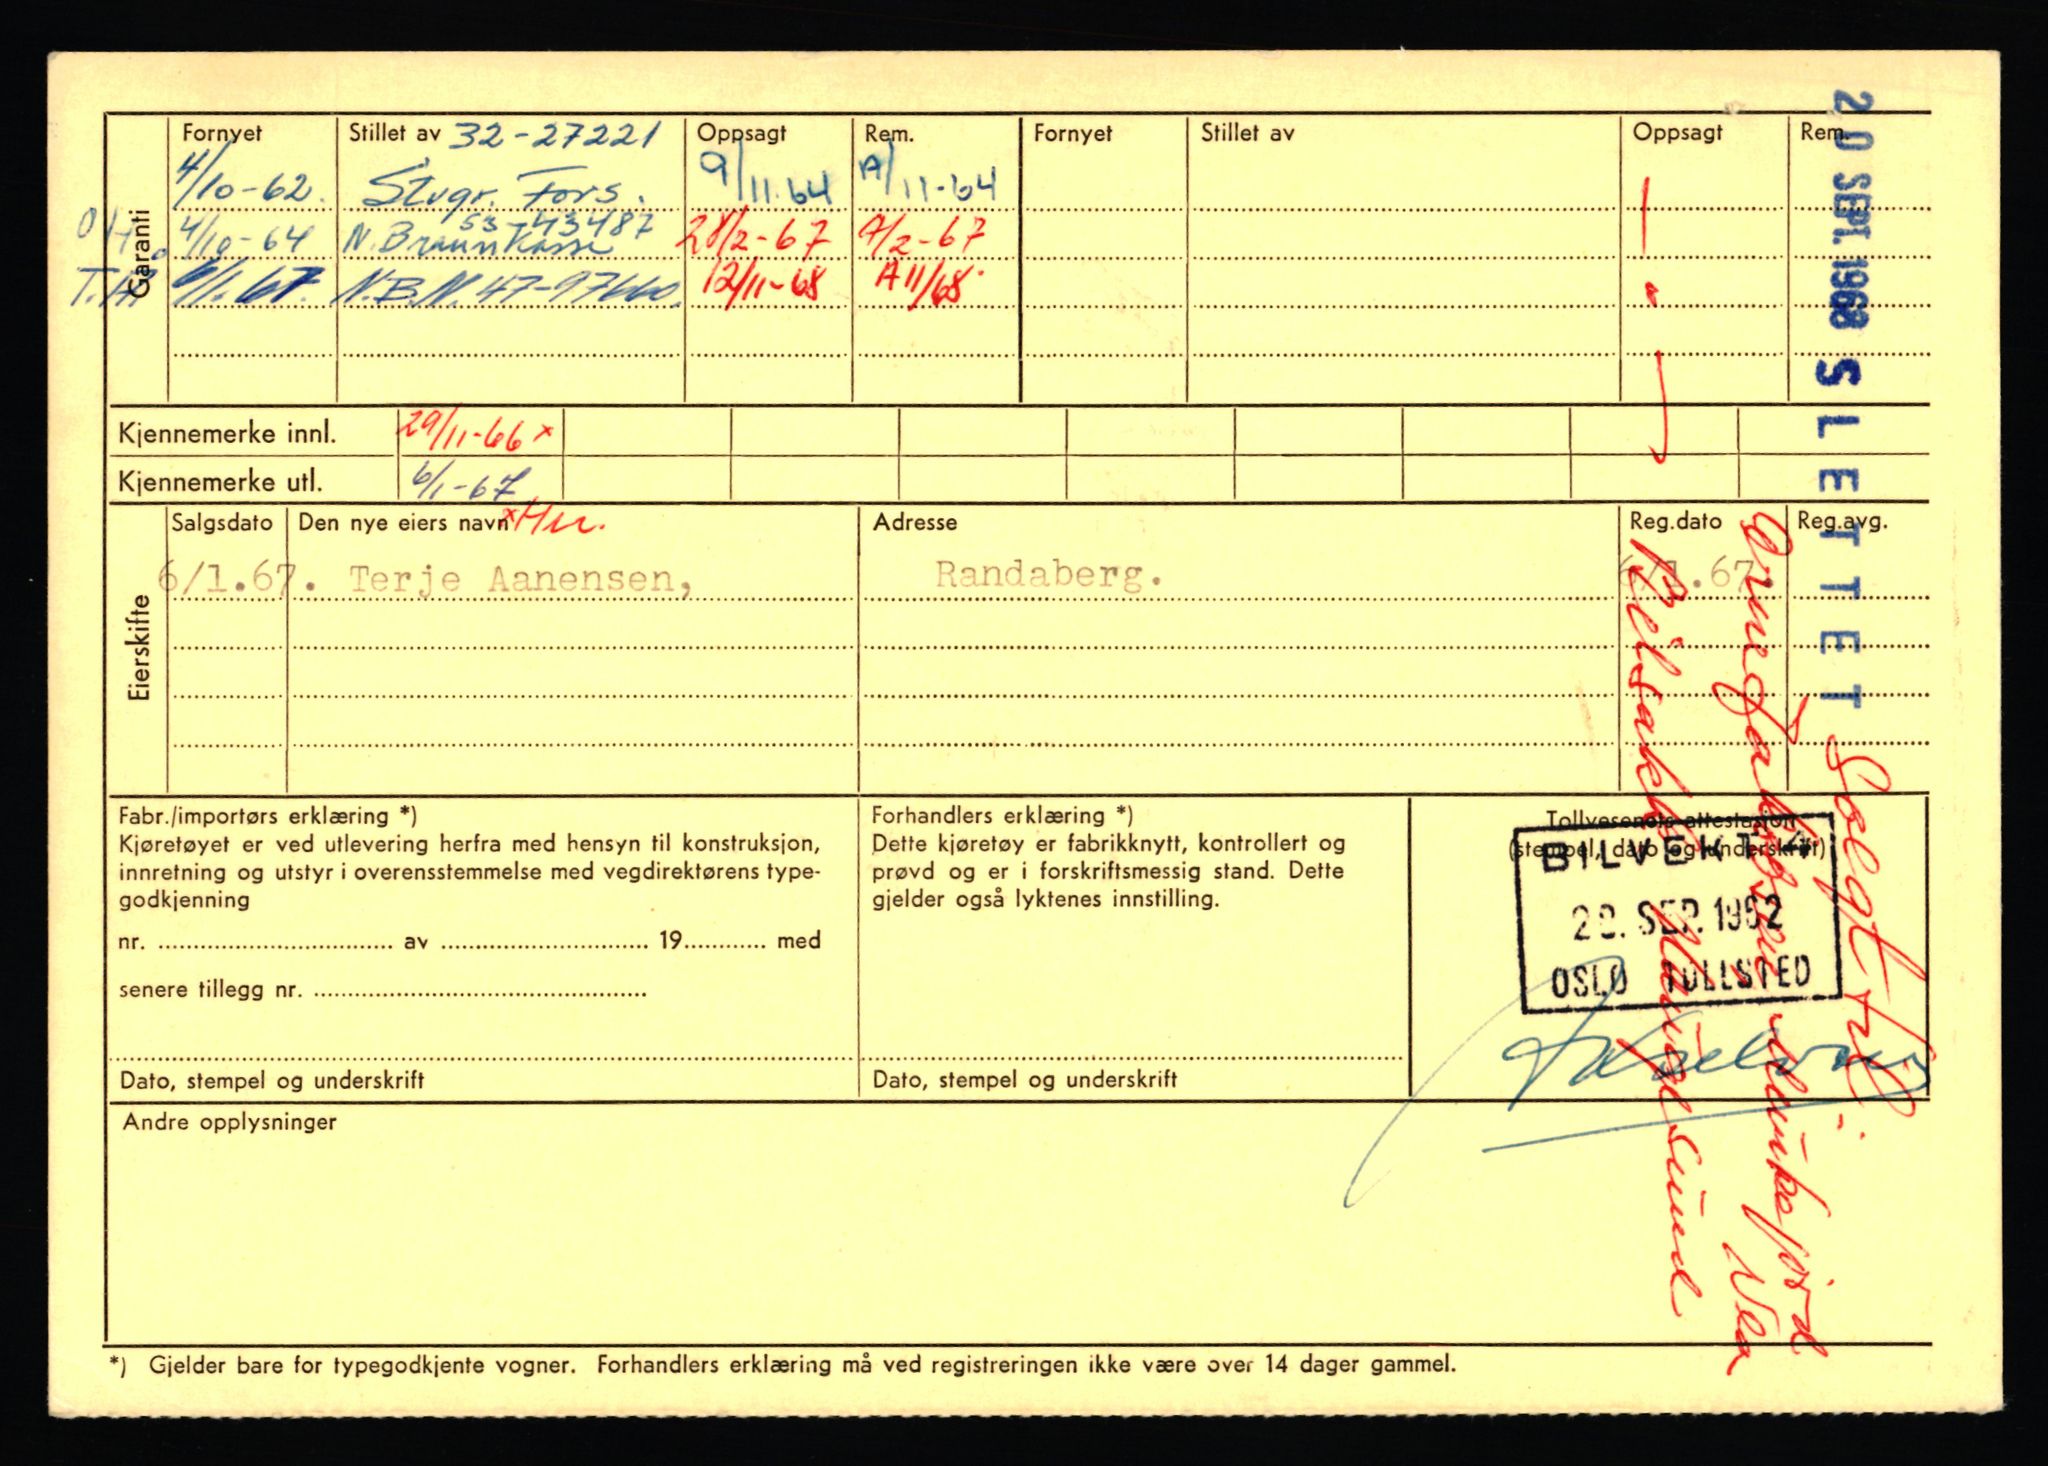 Garanti
Fornyet Stillet av 32-27221 Oppsagt Rem. Fornyet Stillet av Oppsagt Rem.
4/10-62. Stvgr. Fors. 9/11.64 A/11-64
4/10-64 N. Braun Kasse 53-43487 28/2-67 A/2-67
T.H. 6/1.67. N.B.N. 47-97660. 12/11-68 A 11/68
Kjennemerke innl. 29/11-66 x
Kjennemerke utl. 6/1-67
Eierskifte
Salgsdato Den nye eiers navn Adresse Reg.dato Reg.avg.
6/1.67. Terje Aanensen, Randaberg. 6/1.67.
20 SEPT. 1968 SLETTET
Solgt til:
Fabr./importørs erklæring *)
Kjøretøyet er ved utlevering herfra med hensyn til konstruksjon,
innretning og utstyr i overensstemmelse med vegdirektørens type-
godkjenning
nr. av 19 med
senere tillegg nr.
Dato, stempel og underskrift
Forhandlers erklæring *)
Dette kjøretøy er fabrikknytt, kontrollert og
prøvd og er i forskriftsmessig stand. Dette
gjelder også lyktenes innstilling.
Dato, stempel og underskrift
Tollvesenets attestasjon
(stempel, dato og underskrift)
BILVEKT-4
28. SEP. 1962
OSLO TOLLSTED
Andre opplysninger
*) Gjelder bare for typegodkjente vogner. Forhandlers erklæring må ved registreringen ikke være over 14 dager gammel.